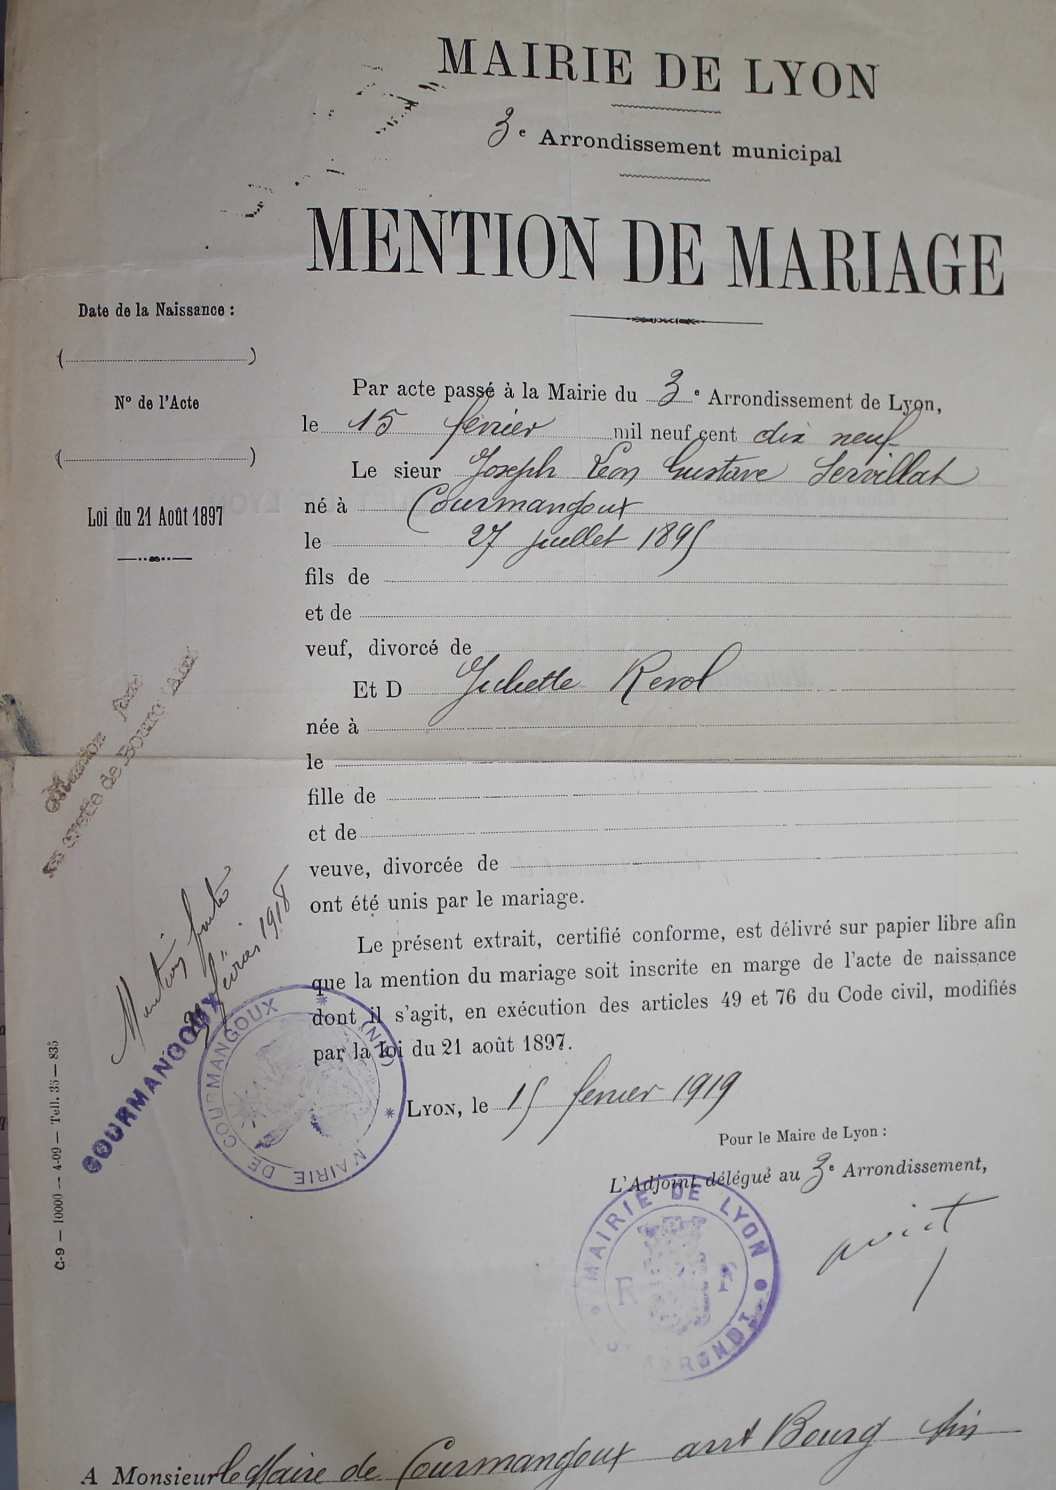 MAIRIE DE LYON
3e Arrondissement municipal
MENTION DE MARIAGE
Date de la Naissance :
( )
N° de l'Acte
( )
Loi du 21 Août 1897
Par acte passé à la Mairie du 3e Arrondissement de Lyon,
le 15 février mil neuf cent dix neuf
Le sieur Joseph Léon Gustave Servillat
né à Courmangoux
le 27 juillet 1895
fils de
et de
veuf, divorcé de
Et D Juliette Revol
née à
le
fille de
et de
veuve, divorcée de
ont été unis par le mariage.
Le présent extrait, certifié conforme, est délivré sur papier libre afin
que la mention du mariage soit inscrite en marge de l'acte de naissance
dont il s'agit, en exécution des articles 49 et 76 du Code civil, modifiés
par la loi du 21 août 1897.
LYON, le 15 fevrier 1919
Pour le Maire de Lyon :
L'Adjoint délégué au 3e Arrondissement,
MAIRIE DE LYON
R F
ARRONDT
Mention faite
au greffe de Bourg
Mention faite
février 1918
COURMANGOUX
MAIRIE DE COURMANGOUX * (AIN) *
C-9 — 10000 — 4-09 — Tell. 35 — 835
A Monsieur le Maire de Courmangoux arrt Bourg Ain